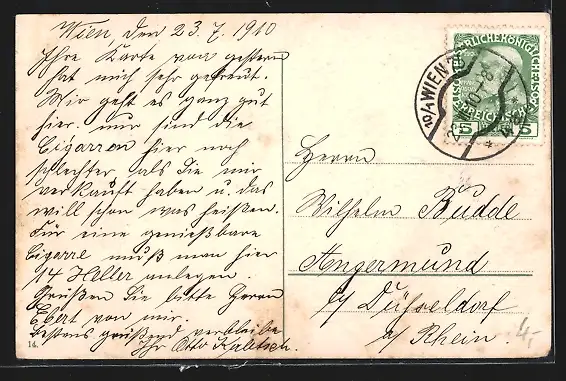 Wien, den 23. 7. 1910
Ihre Karte von gestern
hat mich sehr gefreut.
Mir geht es ganz gut
hier. nur sind die
Cigarren hier noch
schlechter als Sie mir
verkauft haben u. das
will schon was heißen.
Für eine genießbare
Cigarre muß man hier
14 Heller anlegen.
Grüßen Sie bitte Herrn
Ebert von mir.
Bestens grüßend verbleibe
Ihr Otto
14.
10/1 WIEN
5 5
Herrn
Wilhelm Budde
Angermund
b/ Düsseldorf
a/ Rhein.
4,-